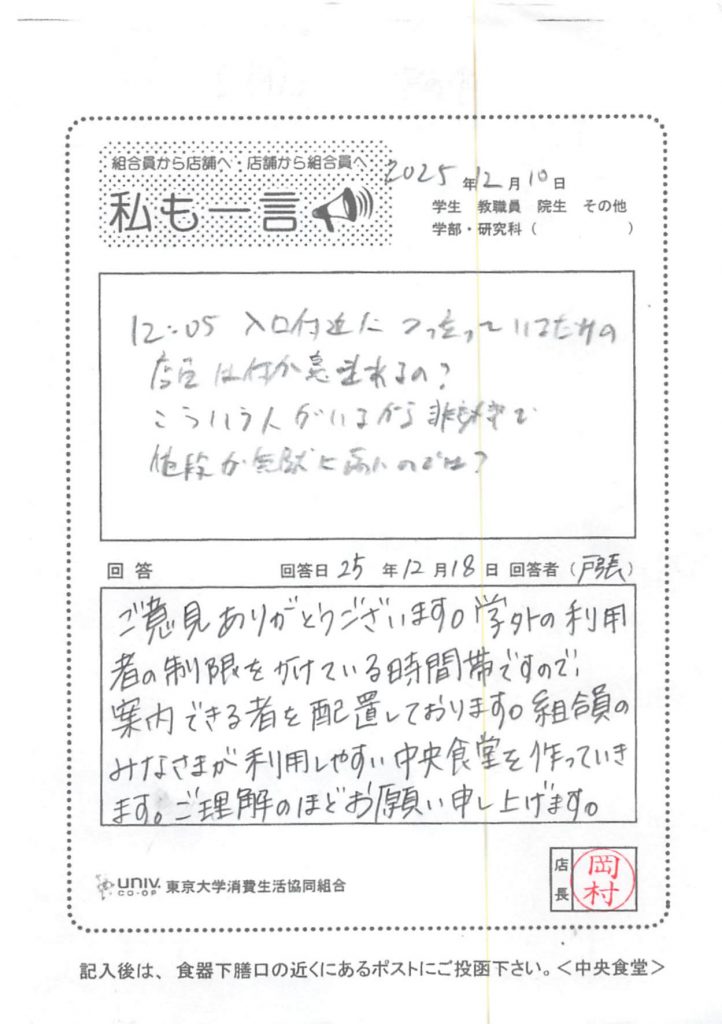 組合員から店舗へ・店舗から組合員へ
私も一言
2025年12月10日
学生 教職員 院生 その他
学部・研究科（　　　）
12:05 入口付近につっ立っているだけの
店員は何か意味あるの？
こういう人がいるから非効率で
値段が無駄に高いのでは？
回答 回答日 25年12月18日 回答者（戸張）
ご意見ありがとうございます。学外の利用
者の制限をかけている時間帯ですので、
案内できる者を配置しております。組合員の
みなさまが利用しやすい中央食堂を作っていき
ます。ご理解のほどお願い申し上げます。
UNIV. CO-OP 東京大学消費生活協同組合
店長 岡村
記入後は、食器下膳口の近くにあるポストにご投函下さい。＜中央食堂＞